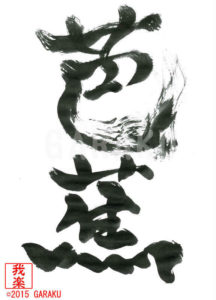 芭蕉
GARAKU
我楽
©2015 GARAKU